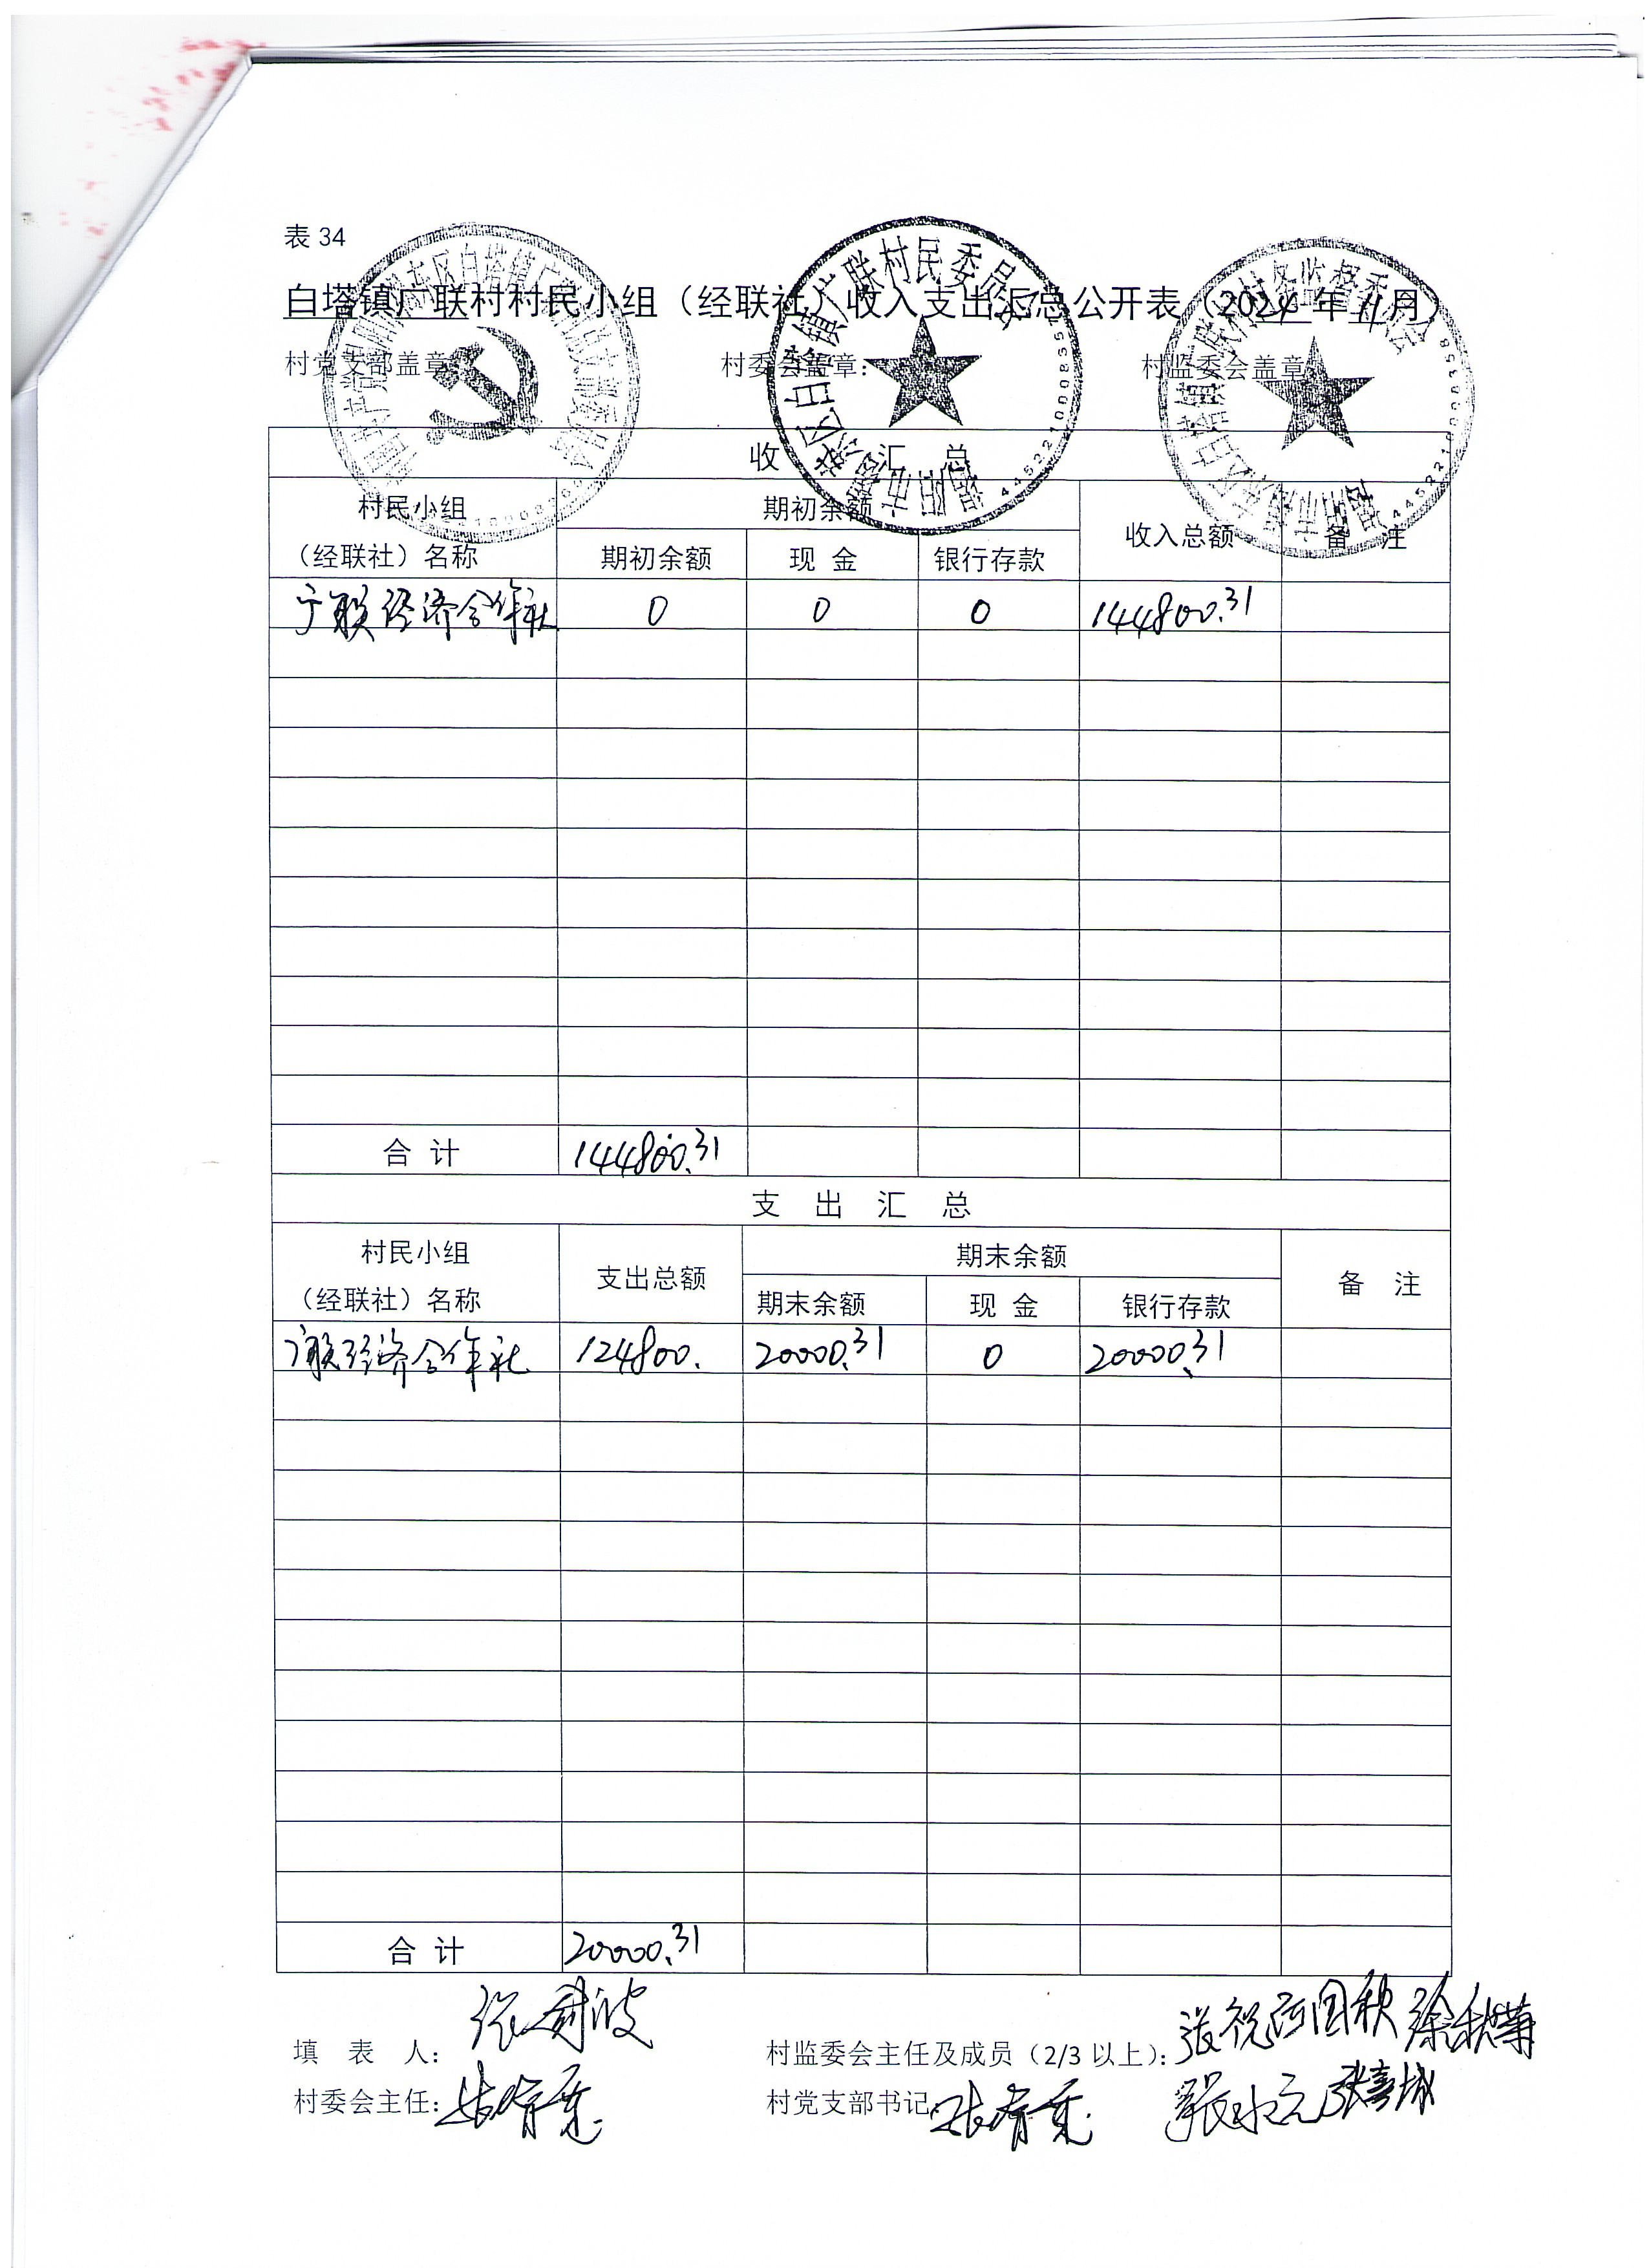 表 34
白塔镇广联村村民小组（经联社）收入支出汇总公开表（2024年11月）
村党支部盖章
村委会盖章：
村监委会盖章
收 汇 总
村民小组（经联社）名称 期初余额 收入总额 备 注
期初余额 现 金 银行存款
广联经济合作社 0 0 0 144800.31
合 计 144800.31
支 出 汇 总
村民小组（经联社）名称 支出总额 期末余额 备 注
期末余额 现 金 银行存款
广联经济合作社 124800. 20000.31 0 20000.31
合 计 20000.31
填 表 人：
村监委会主任及成员（2/3 以上）：
村委会主任：
村党支部书记